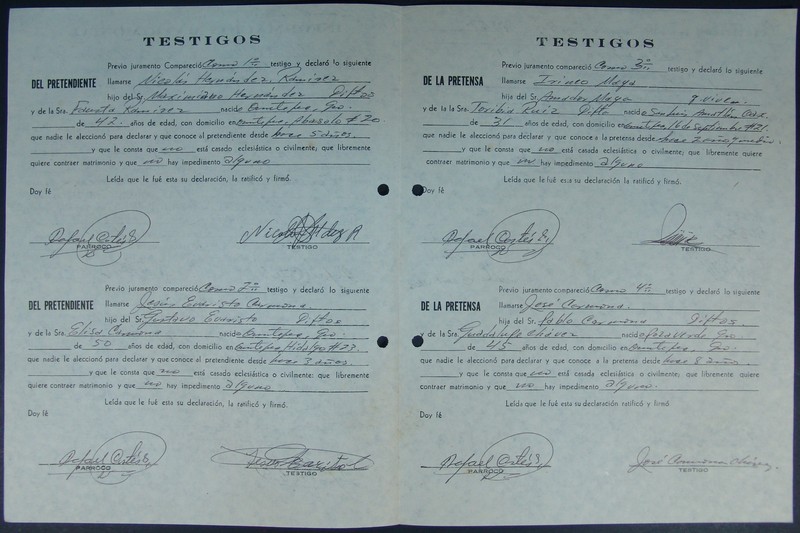 TESTIGOS
Previo juramento Compareció Como 1er testigo y declaró lo siguiente
DEL PRETENDIENTE llamarse Nicolás Hernández Ramírez
hijo del Sr. Maximiano Hernández Diftos
y de la Sra. Ramírez nacido Gto.
de 42. años de edad, con domicilio en Abasolo # 20
que nadie le aleccionó para declarar y que conoce al pretendiente desde hace 5 años.
y que le consta que no está casado eclesiástica o civilmente; que libremente
quiere contraer matrimonio y que no hay impedimento alguno
Leída que le fué esta su declaración, la ratificó y firmó.
Doy fé
Rafael Cortés
PARROCO
TESTIGO
Previo juramento compareció Como testigo y declaró lo siguiente
DEL PRETENDIENTE llamarse Jesús Evaristo Carmona
hijo del Sr. Gustavo Evaristo Diftos
y de la Sra. Elisa Carmona nacido Gto.
de 50 años de edad, con domicilio en Hidalgo # 27
que nadie le aleccionó para declarar y que conoce al pretendiente desde hace años
y que le consta que no está casado eclesiástica o civilmente; que libremente
quiere contraer matrimonio y que no hay impedimento alguno
Leída que le fué esta su declaración, la ratificó y firmó.
Doy fé
Rafael Cortés
PARROCO
TESTIGO
TESTIGOS
Previo juramento compareció Como testigo y declaró lo siguiente
DE LA PRETENSA llamarse Irineo Maya
hija del Sr. Amador Maya q. viven
y de la Sra. Toribia Ruiz Difta nacido
de 31 años de edad, con domicilio en 16 de Septiembre #21.
que nadie le aleccionó para declarar y que conoce a la pretensa desde hace 2 años y medio.
y que le consta que no está casado eclesiástica o civilmente; que libremente quiere
contraer matrimonio y que no hay impedimento alguno
Leída que le fué esta su declaración, la ratificó y firmó.
Doy fé
Rafael Cortés
PARROCO
TESTIGO
Previo juramento compareció Como testigo y declaró lo siguiente
DE LA PRETENSA llamarse José Carmona.
hijo del Sr. Pablo Carmona Diftos.
y de la Sra. Guadalupe Chávez nacido Gto.
de 45 años de edad, con domicilio en Gto.
que nadie le aleccionó para declarar y que conoce a la pretensa desde hace 8 años
y que le consta que no está casado eclesiástica o civilmente; que libremente quiere
contraer matrimonio y que no hay impedimento alguno.
Leída que le fué esta su declaración ratificó y firmó.
Doy fé
Rafael Cortés
PARROCO
José Carmona Chávez.
TESTIGO